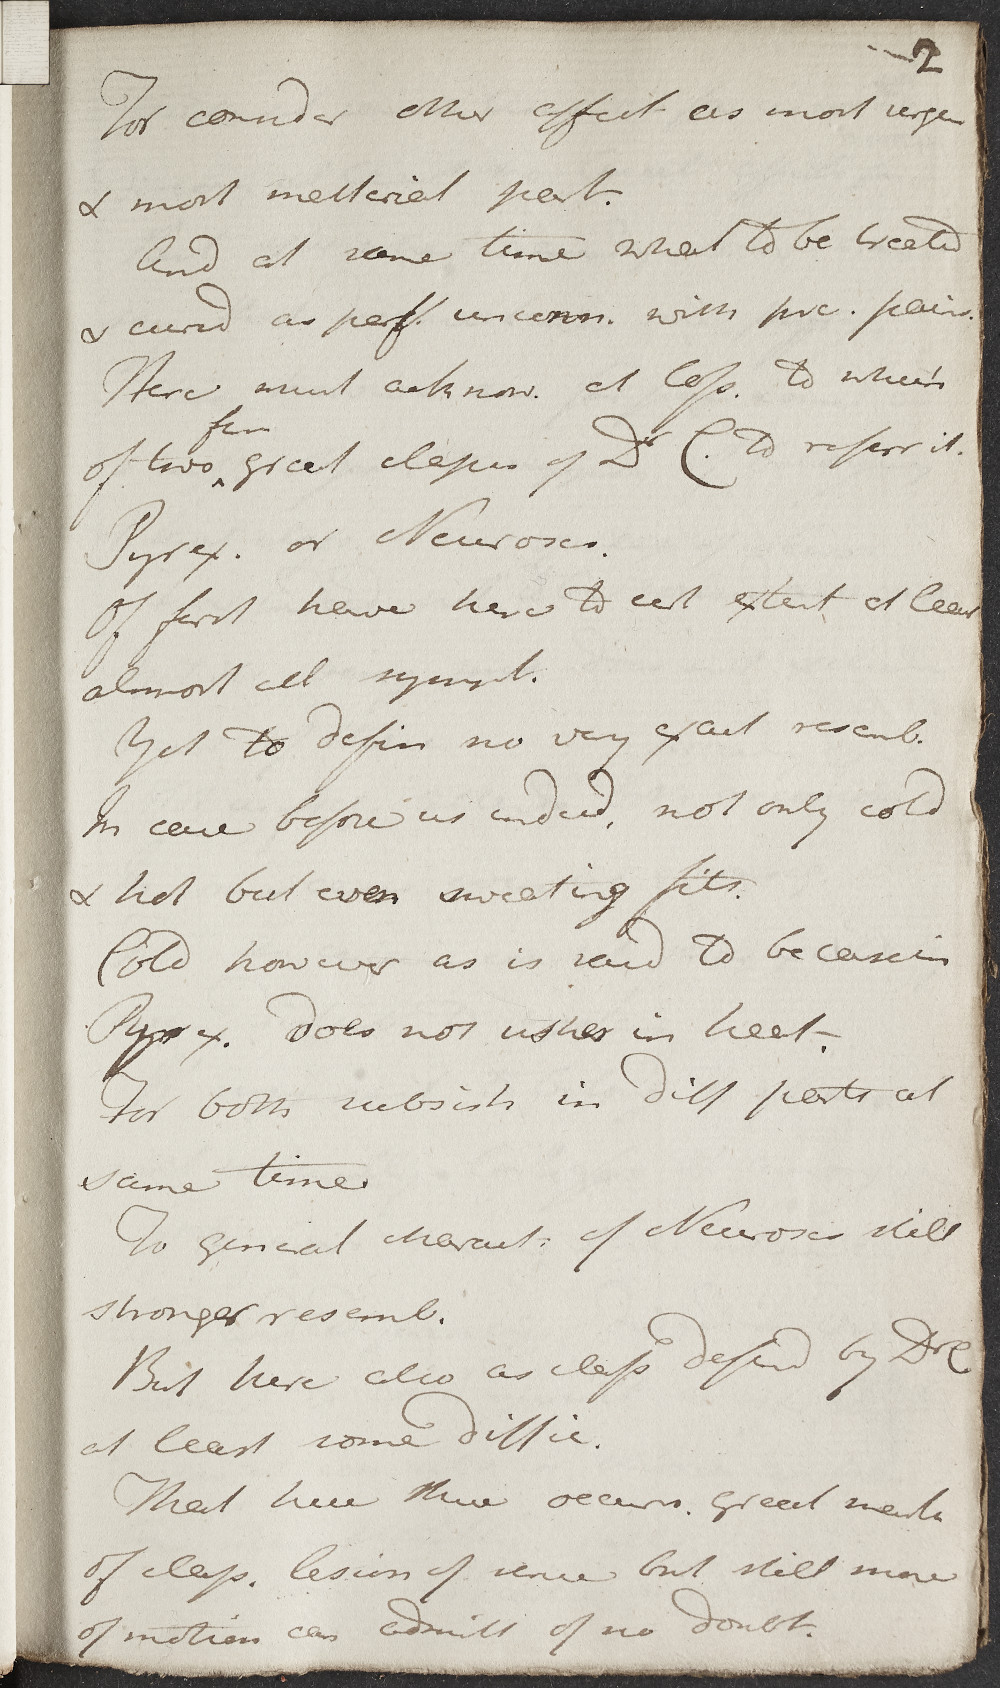 2
For consider other affect as most urgen
& most matterial part.
And at same time what to be treated
& cured as perf. unconn. with prc. pains.
Here must acknow. at loss. to which
of two great classes of Dr C. to referr it.
first
Pyrex. or Neuroses.
Of first have here to cert extent at least
almost all sympt.
Yet to defin no very exact resemb.
In case before us indeed, not only cold
& hot but even sweating fits.
Cold however as is said to be case in
Pyrex. does not usher in heat.
For both subsists in diff parts at
same time
To general charact: of Neuroses still
stronger resemb.
But here also as class defind by Dr C
at least some diffic.
That here there occurs. great marks
of class. lesion of sense but still more
of motion can admitt of no doubt.